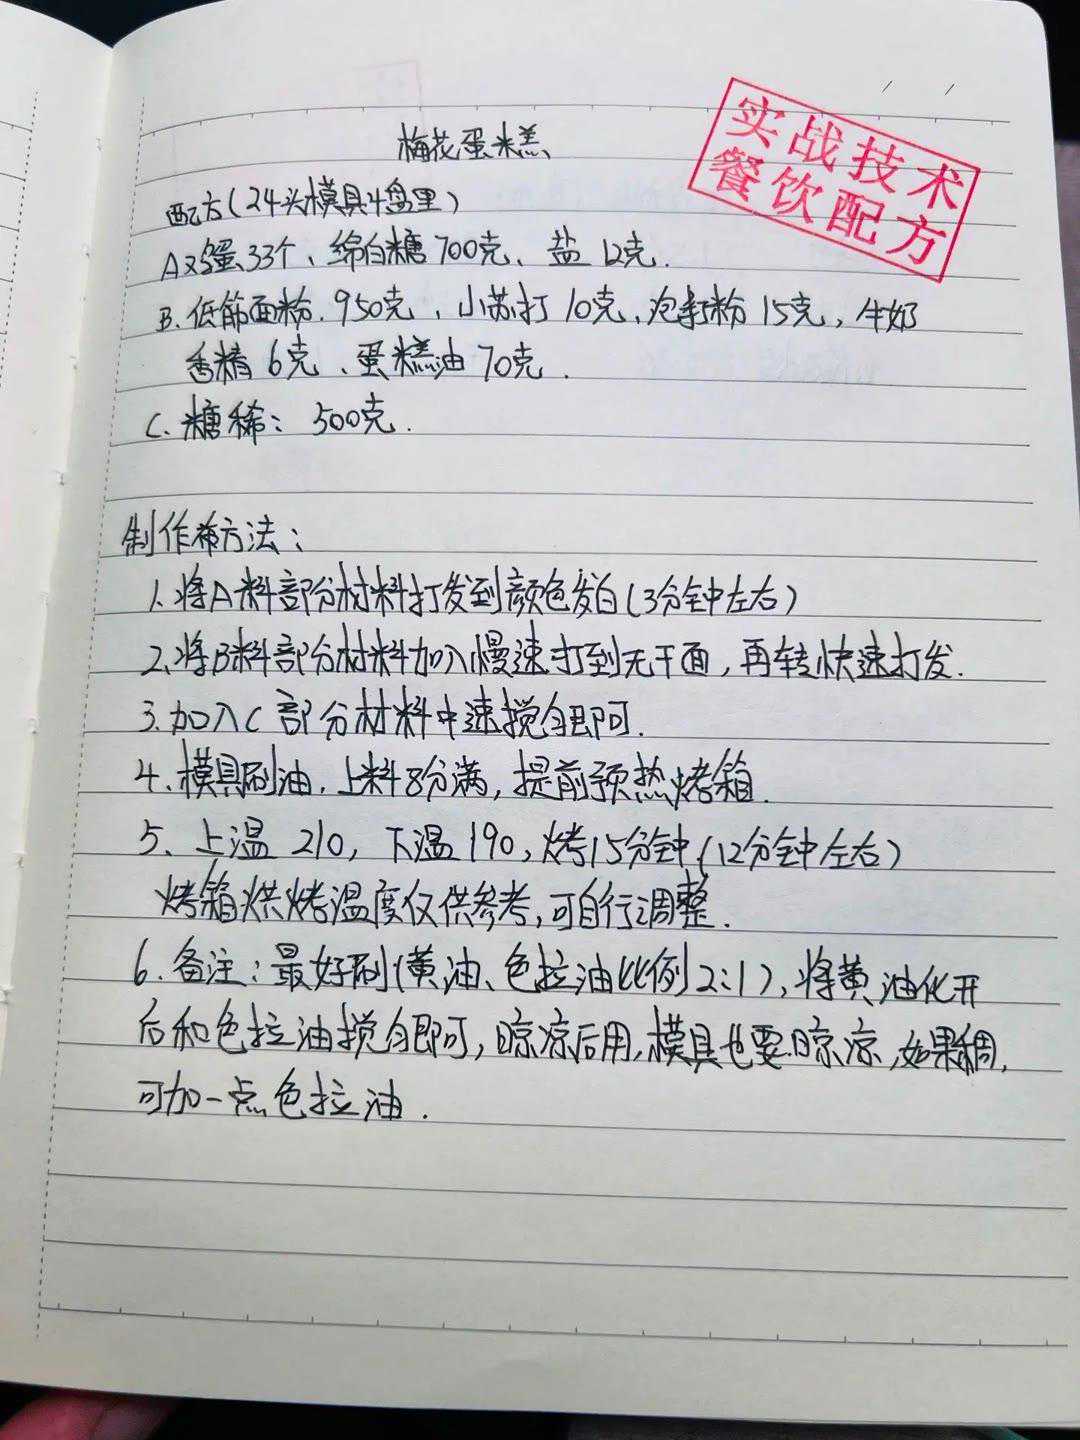 实战技术
餐饮配方
梅花蛋糕、
配方(24头模具4盘里)
A鸡蛋33个、绵白糖700克、盐12克.
B.低筋面粉.950克,小苏打10克、泡打粉15克,牛奶
香精6克、蛋糕油70克.
C.糖稀:500克.
制作方法:
1.将A料部分材料打发到颜色发白(3分钟左右)
2.将B料部分材料加入慢速打到无干面,再转快速打发.
3.加入C部分材料中速搅匀即可.
4.模具刷油.上料8分满,提前预热烤箱.
5、上温210,下温190,烤15分钟(12分钟左右)
烤箱烘烤温度仅供参考,可自行调整.
6.备注:最好刷(黄油、色拉油比例2:1),将黄油化开
后和色拉油搅匀即可,晾凉后用,模具也要晾凉,如果稠,
可加一点色拉油.